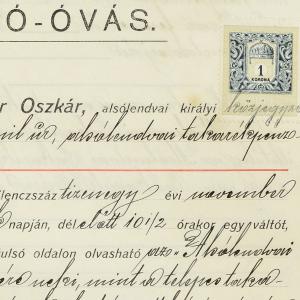 Ó-ÓVÁS.
1
KORONA
r Oszkár, alsólendvai királyi közjegyző
úr, alsólendvai takarékpénz-
lenczszáz tizenegy évi november
napján, délelőtt 10 1/2 órakor egy váltót,
ulsó oldalon olvasható az "Alsólendvai
neki, mint a telepes taka-